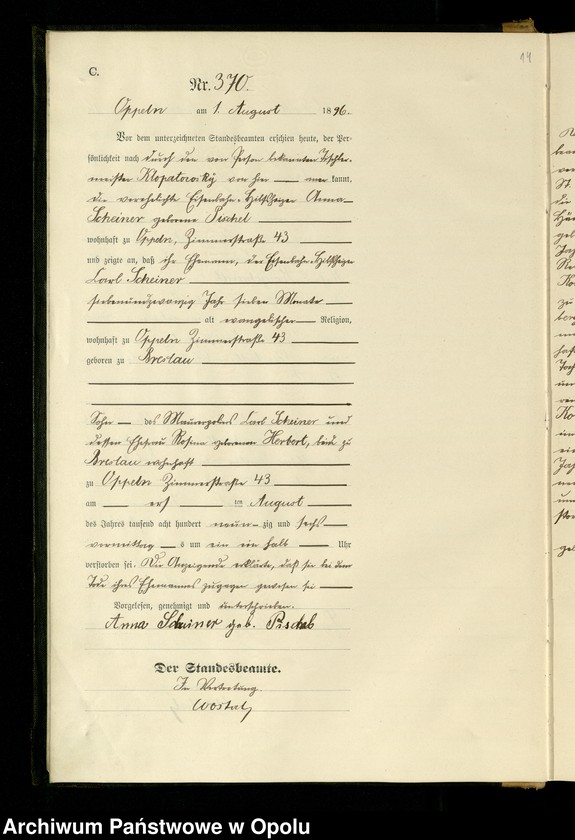 14
C.
Nr. 370.
Oppeln am 1. August 1896.
Vor dem unterzeichneten Standesbeamten erschien heute, der Per-
sönlichkeit nach durch den von Person bekannten Tischler-
meister Klopatowsky vor hier kannt,
die verehelichte Eisenbahn-Hilfsheizer Anna
Scheiner geborene Pischel
wohnhaft zu Oppeln, Zimmerstraße 43
und zeigte an, daß ihr Ehemann, der Eisenbahn-Hilfsheizer
Carl Scheiner
siebenundzwanzig Jahr sieben Monate
alt evangelischer Religion,
wohnhaft zu Oppeln Zimmerstraße 43
geboren zu Breslau
Sohn des Maurerpoliers Carl Scheiner und
dessen Ehefrau Rosina geborenen Herbort, beide zu
Breslau wohnhaft
zu Oppeln Zimmerstraße 43
am ersten August
des Jahres tausend acht hundert neunzig und sechs
vormittags um ein ein halb Uhr
verstorben sei. Die Anzeigende erklärte, daß sie bei dem
Tode ihres Ehemannes zugegen gewesen sei
Vorgelesen, genehmigt und unterschrieben.
Anna Scheiner geb. Pischel
Der Standesbeamte.
In Vertretung.
Wostal
Archiwum Państwowe w Opolu